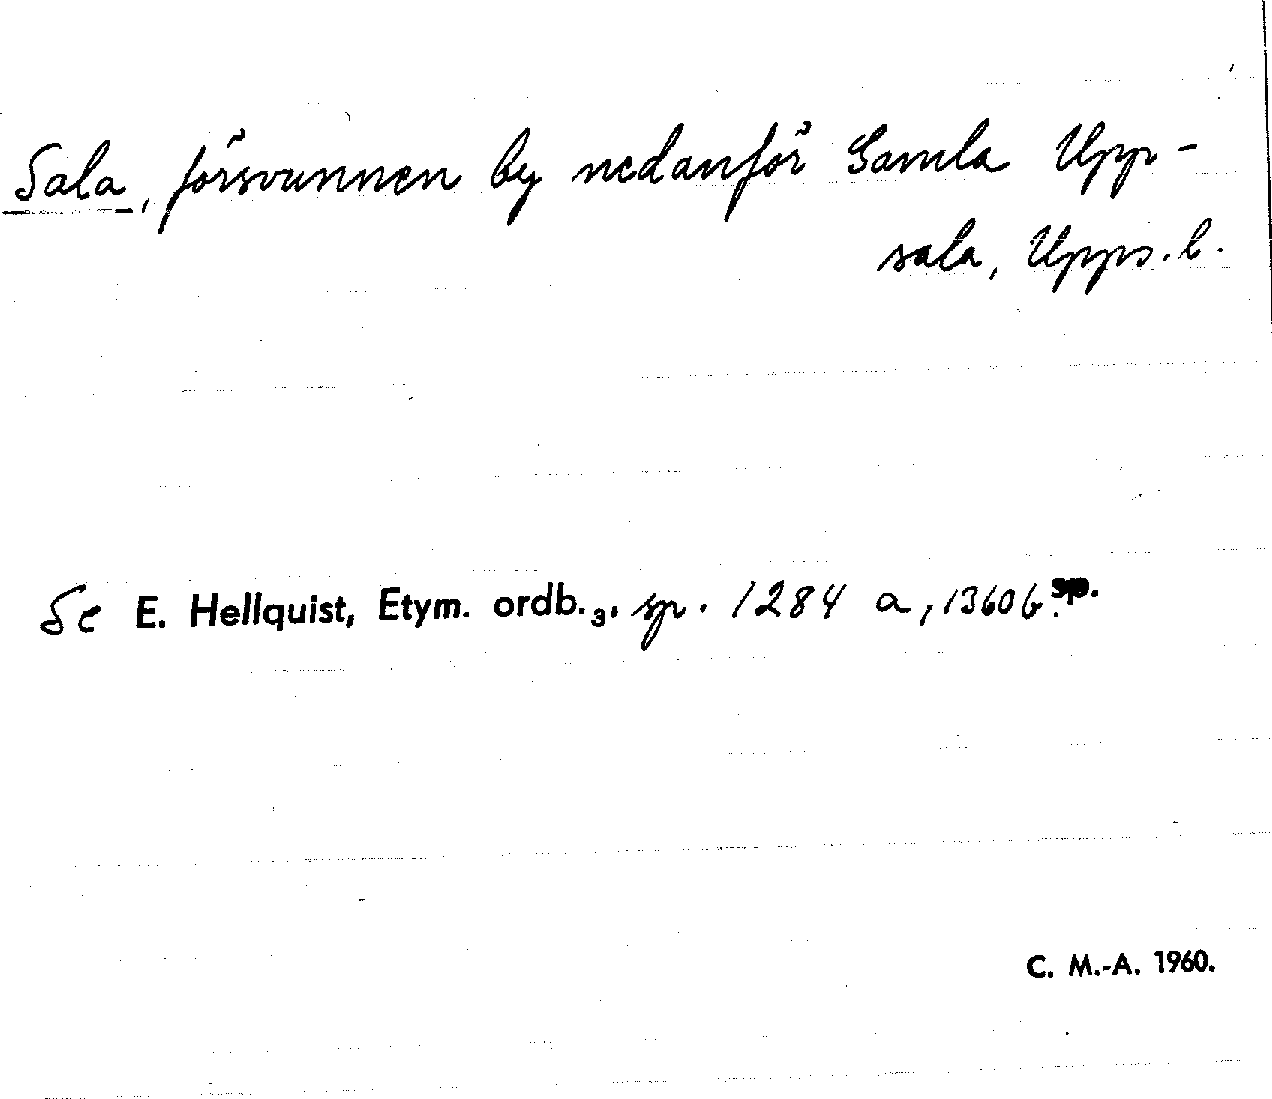 Sala, försvunnen by nedanför Gamla Upp-
sala, Upps. l.
Se E. Hellquist, Etym. ordb.₃, sp. 1284 a, 1360 b. sp.
C. M.-A. 1960.